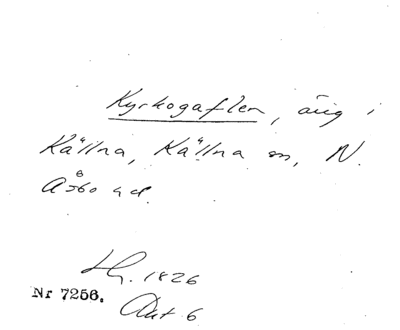 Kyrkogaflen, äng i
Källna, Källna sn, N.
Åsbo hd.
Hy. 1826
Nr 7256. Akt 6